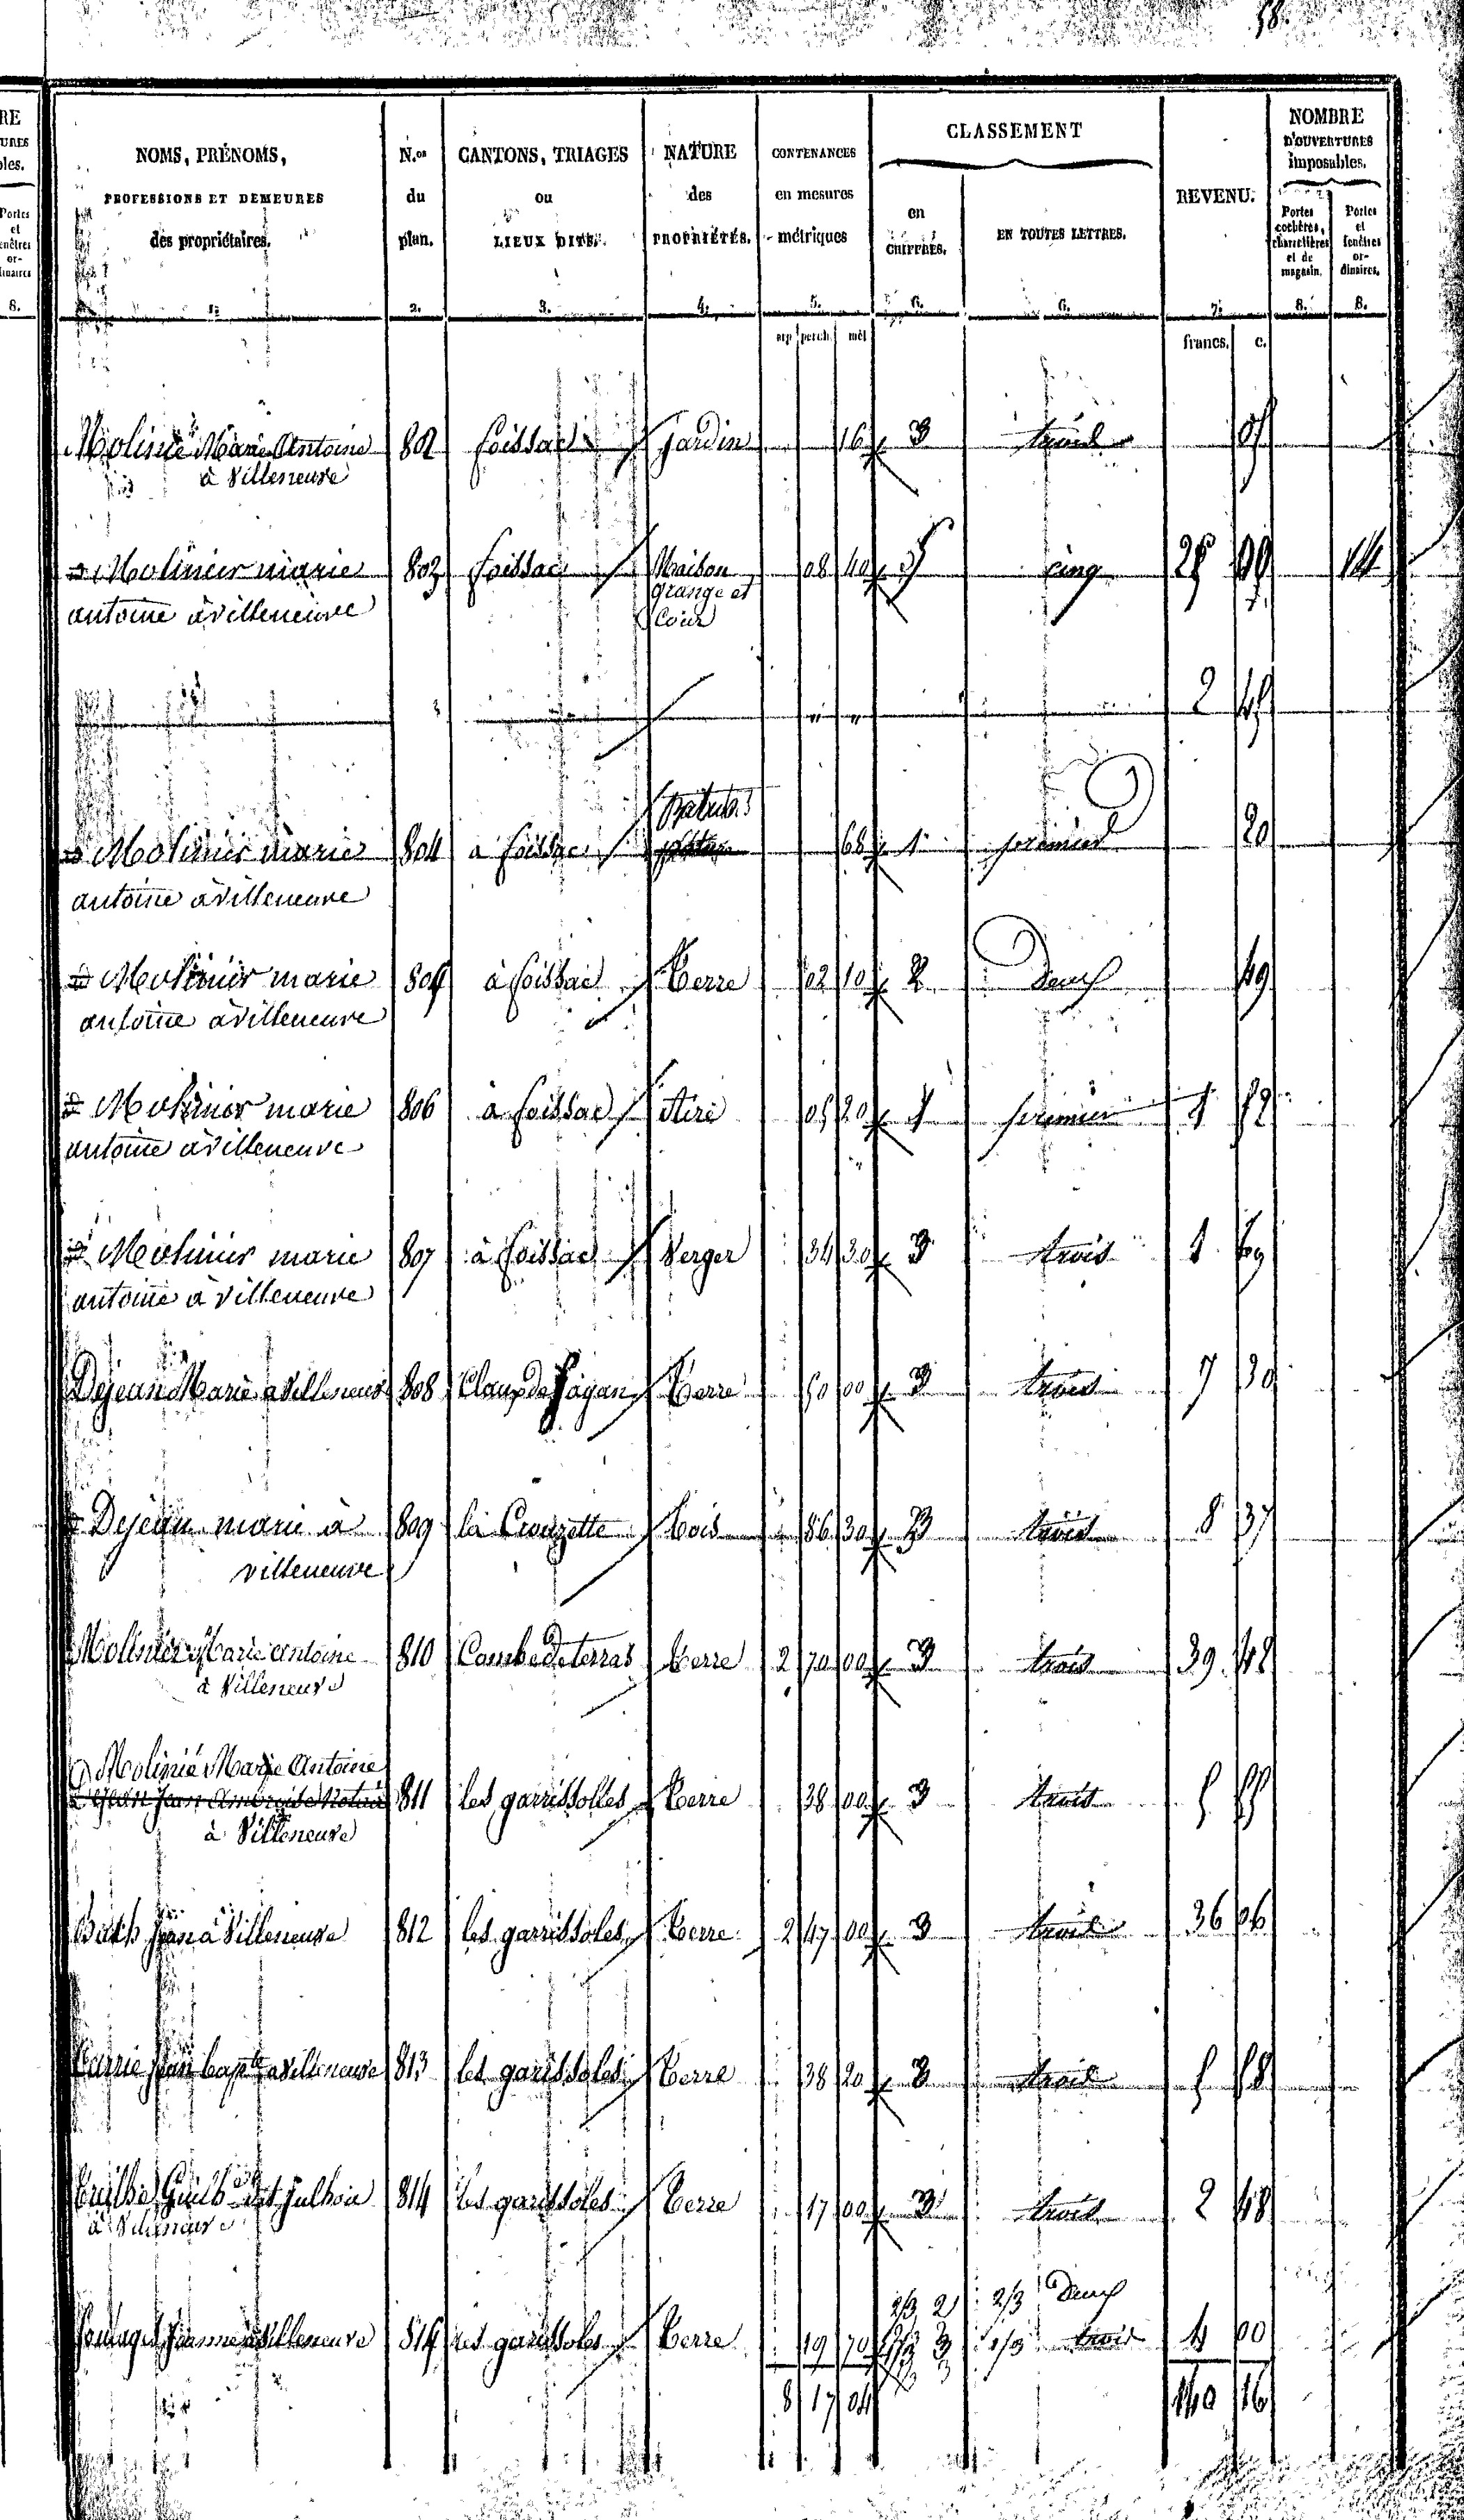 58.
NOMS, PRÉNOMS,
PROFESSIONS ET DEMEURES
des propriétaires.
N.os
du
plan.
CANTONS, TRIAGES
ou
LIEUX DITS.
NATURE
des
PROPRIÉTÉS.
CONTENANCES
en mesures
métriques
CLASSEMENT
en
CHIFFRES.
EN TOUTES LETTRES.
REVENU.
NOMBRE
D'OUVERTURES
imposables.
Portes
cochères,
charretières
et de
magasin.
Portes
et
fenêtres
or-
dinaires.
1. 2. 3. 4. 5. 6. 6. 7. 8. 8.
arp perch. mèt francs. c.
Molinié Marie Antoine 802 foissac jardin 16 3 trois
à Villeneuve
Molinier marie 803 foissac Maison 08 40 5 cinq 14
antoine à villeneuve grange et
Cour
2 45
Patus
Molinier marie 804 à foissac 68 1 premier 20
antoine à villeneuve
Molinier marie 805 à foissac Terre 02 10 2 deux 49
antoine à villeneuve
Molinier marie 806 à foissac Airé 05 20 1 premier 1 52
antoine à villeneuve
Molinier marie 807 à foissac Verger 34 30 3 trois 1 69
antoine à villeneuve
Dejean Marie à Villeneuve 808 Claux de Pagan Terre 50 00 3 trois 7 30
Dejean marie à 809 la Crouzette bois 86 30 3 trois 8 37
villeneuve
Molinier Marie antoine 810 Combe de terras Terre 2 70 00 3 trois 39 42
à Villeneuve
Molinié Marie Antoine
811 les garrissolles Terre 38 00 3 trois 5 55
à Villeneuve
Jean à Villeneuve 812 les garrissoles Terre 2 47 00 3 trois 36 06
Carrie Jean bapte à villeneuve 813 les garissoles Terre 38 20 3 trois 5 58
814 les garissoles Terre 17 00 3 trois 2 48
à Villeneuve
2/3 2 2/3 Deux
Jeanne à Villeneuve 815 les garissoles Terre 19 70 1/3 3 1/3 trois 4 00
8 17 04 140 16